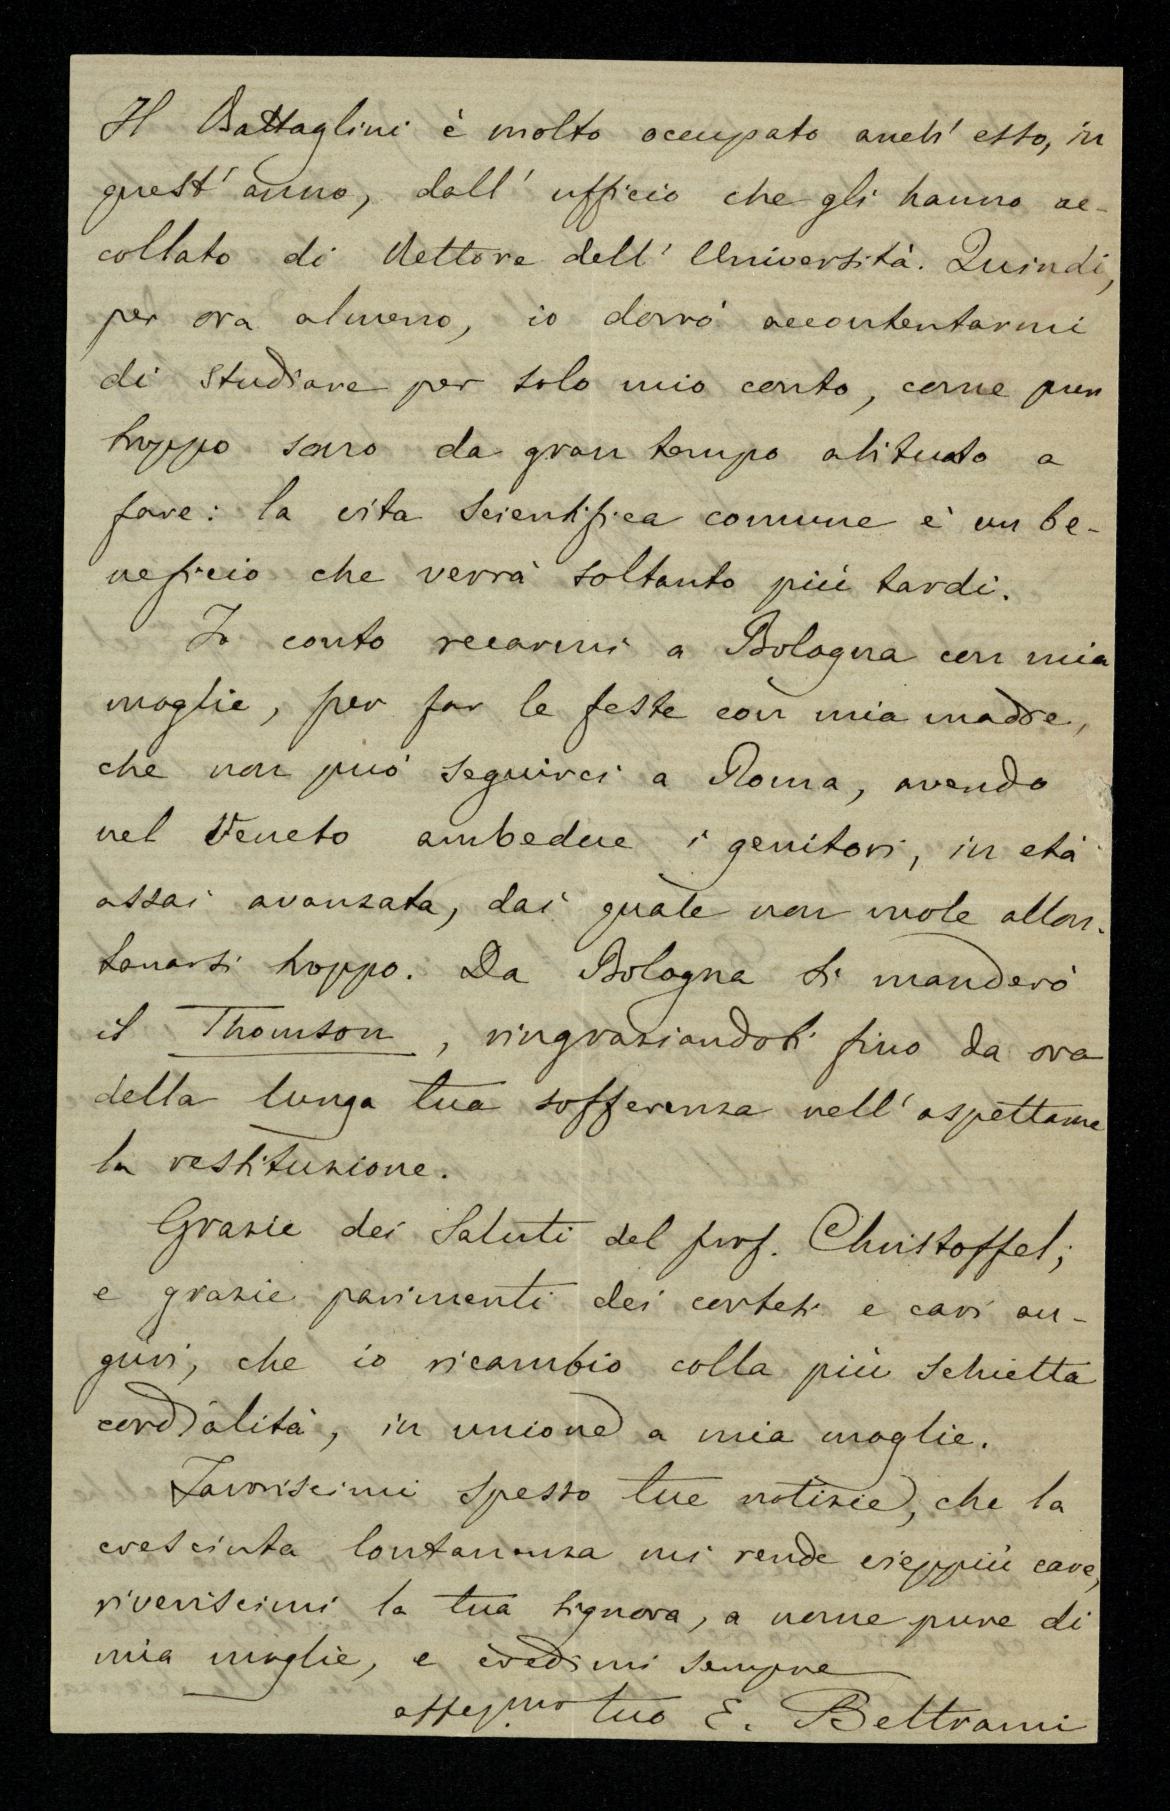 Il Battaglini è molto occupato anch' esso, in
quest' anno, dall' ufficio che gli hanno ac-
collato di Rettore dell' Università. Quindi,
per ora almeno, io dovrò accontentarmi
di studiare per solo mio conto, come pur
troppo sono da gran tempo abituato a
fare: la vita scientifica comune è un be-
neficio che verrà soltanto più tardi.
Io conto recarmi a Bologna con mia
moglie, per far le feste con mia madre,
che non può seguirci a Roma, avendo
nel Veneto ambedue i genitori, in età
assai avanzata, dai quale non vuole allon-
tanarsi troppo. Da Bologna ti manderò
il Thomson, ringraziandoti fino da ora
della lunga tua sofferenza nell' aspettarne
la restituzione.
Grazie dei saluti del prof. Christoffel;
e grazie parimenti dei cortesi e cari au-
gùri, che io ricambio colla più schietta
cordialità, in unione a mia moglie.
Favoriscimi spesso tue notizie, che la
cresciuta lontananza mi rende vieppiù care,
riveriscimi la tua signora, a nome pure di
mia moglie, e credimi sempre
affezmo tuo E. Beltrami